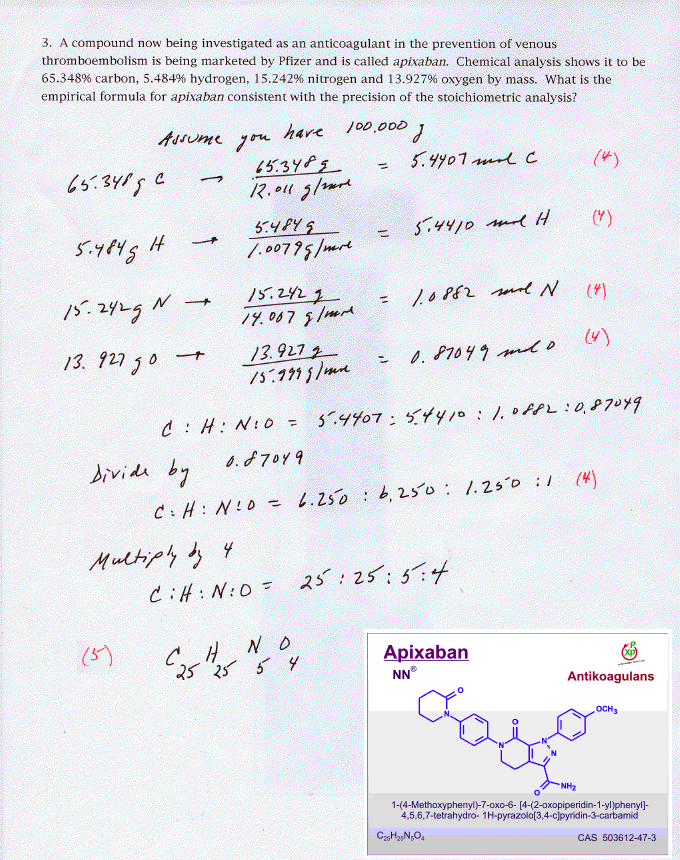 3. A compound now being investigated as an anticoagulant in the prevention of venous
thromboembolism is being marketed by Pfizer and is called apixaban. Chemical analysis shows it to be
65.348% carbon, 5.484% hydrogen, 15.242% nitrogen and 13.927% oxygen by mass. What is the
empirical formula for apixaban consistent with the precision of the stoichiometric analysis?
Assume you have 100.000 g
65.348 g C → 65.348 g / 12.011 g/mol = 5.4407 mol C (4)
5.484 g H → 5.484 g / 1.0079 g/mol = 5.4410 mol H (4)
15.242 g N → 15.242 g / 14.007 g/mol = 1.0882 mol N (4)
13.927 g O → 13.927 g / 15.999 g/mol = 0.87049 mol O (4)
C : H : N : O = 5.4407 : 5.4410 : 1.0882 : 0.87049
Divide by 0.87049
C : H : N : O = 6.250 : 6.250 : 1.250 : 1 (4)
Multiply by 4
C : H : N : O = 25 : 25 : 5 : 4
(5) C25 H25 N5 O4
Apixaban
NN®
XP
Antikoagulans
O
N
N
O
N
N
OCH3
O
NH2
1-(4-Methoxyphenyl)-7-oxo-6- [4-(2-oxopiperidin-1-yl)phenyl]-
4,5,6,7-tetrahydro- 1H-pyrazolo[3,4-c]pyridin-3-carbamid
C25H25N5O4
CAS 503612-47-3